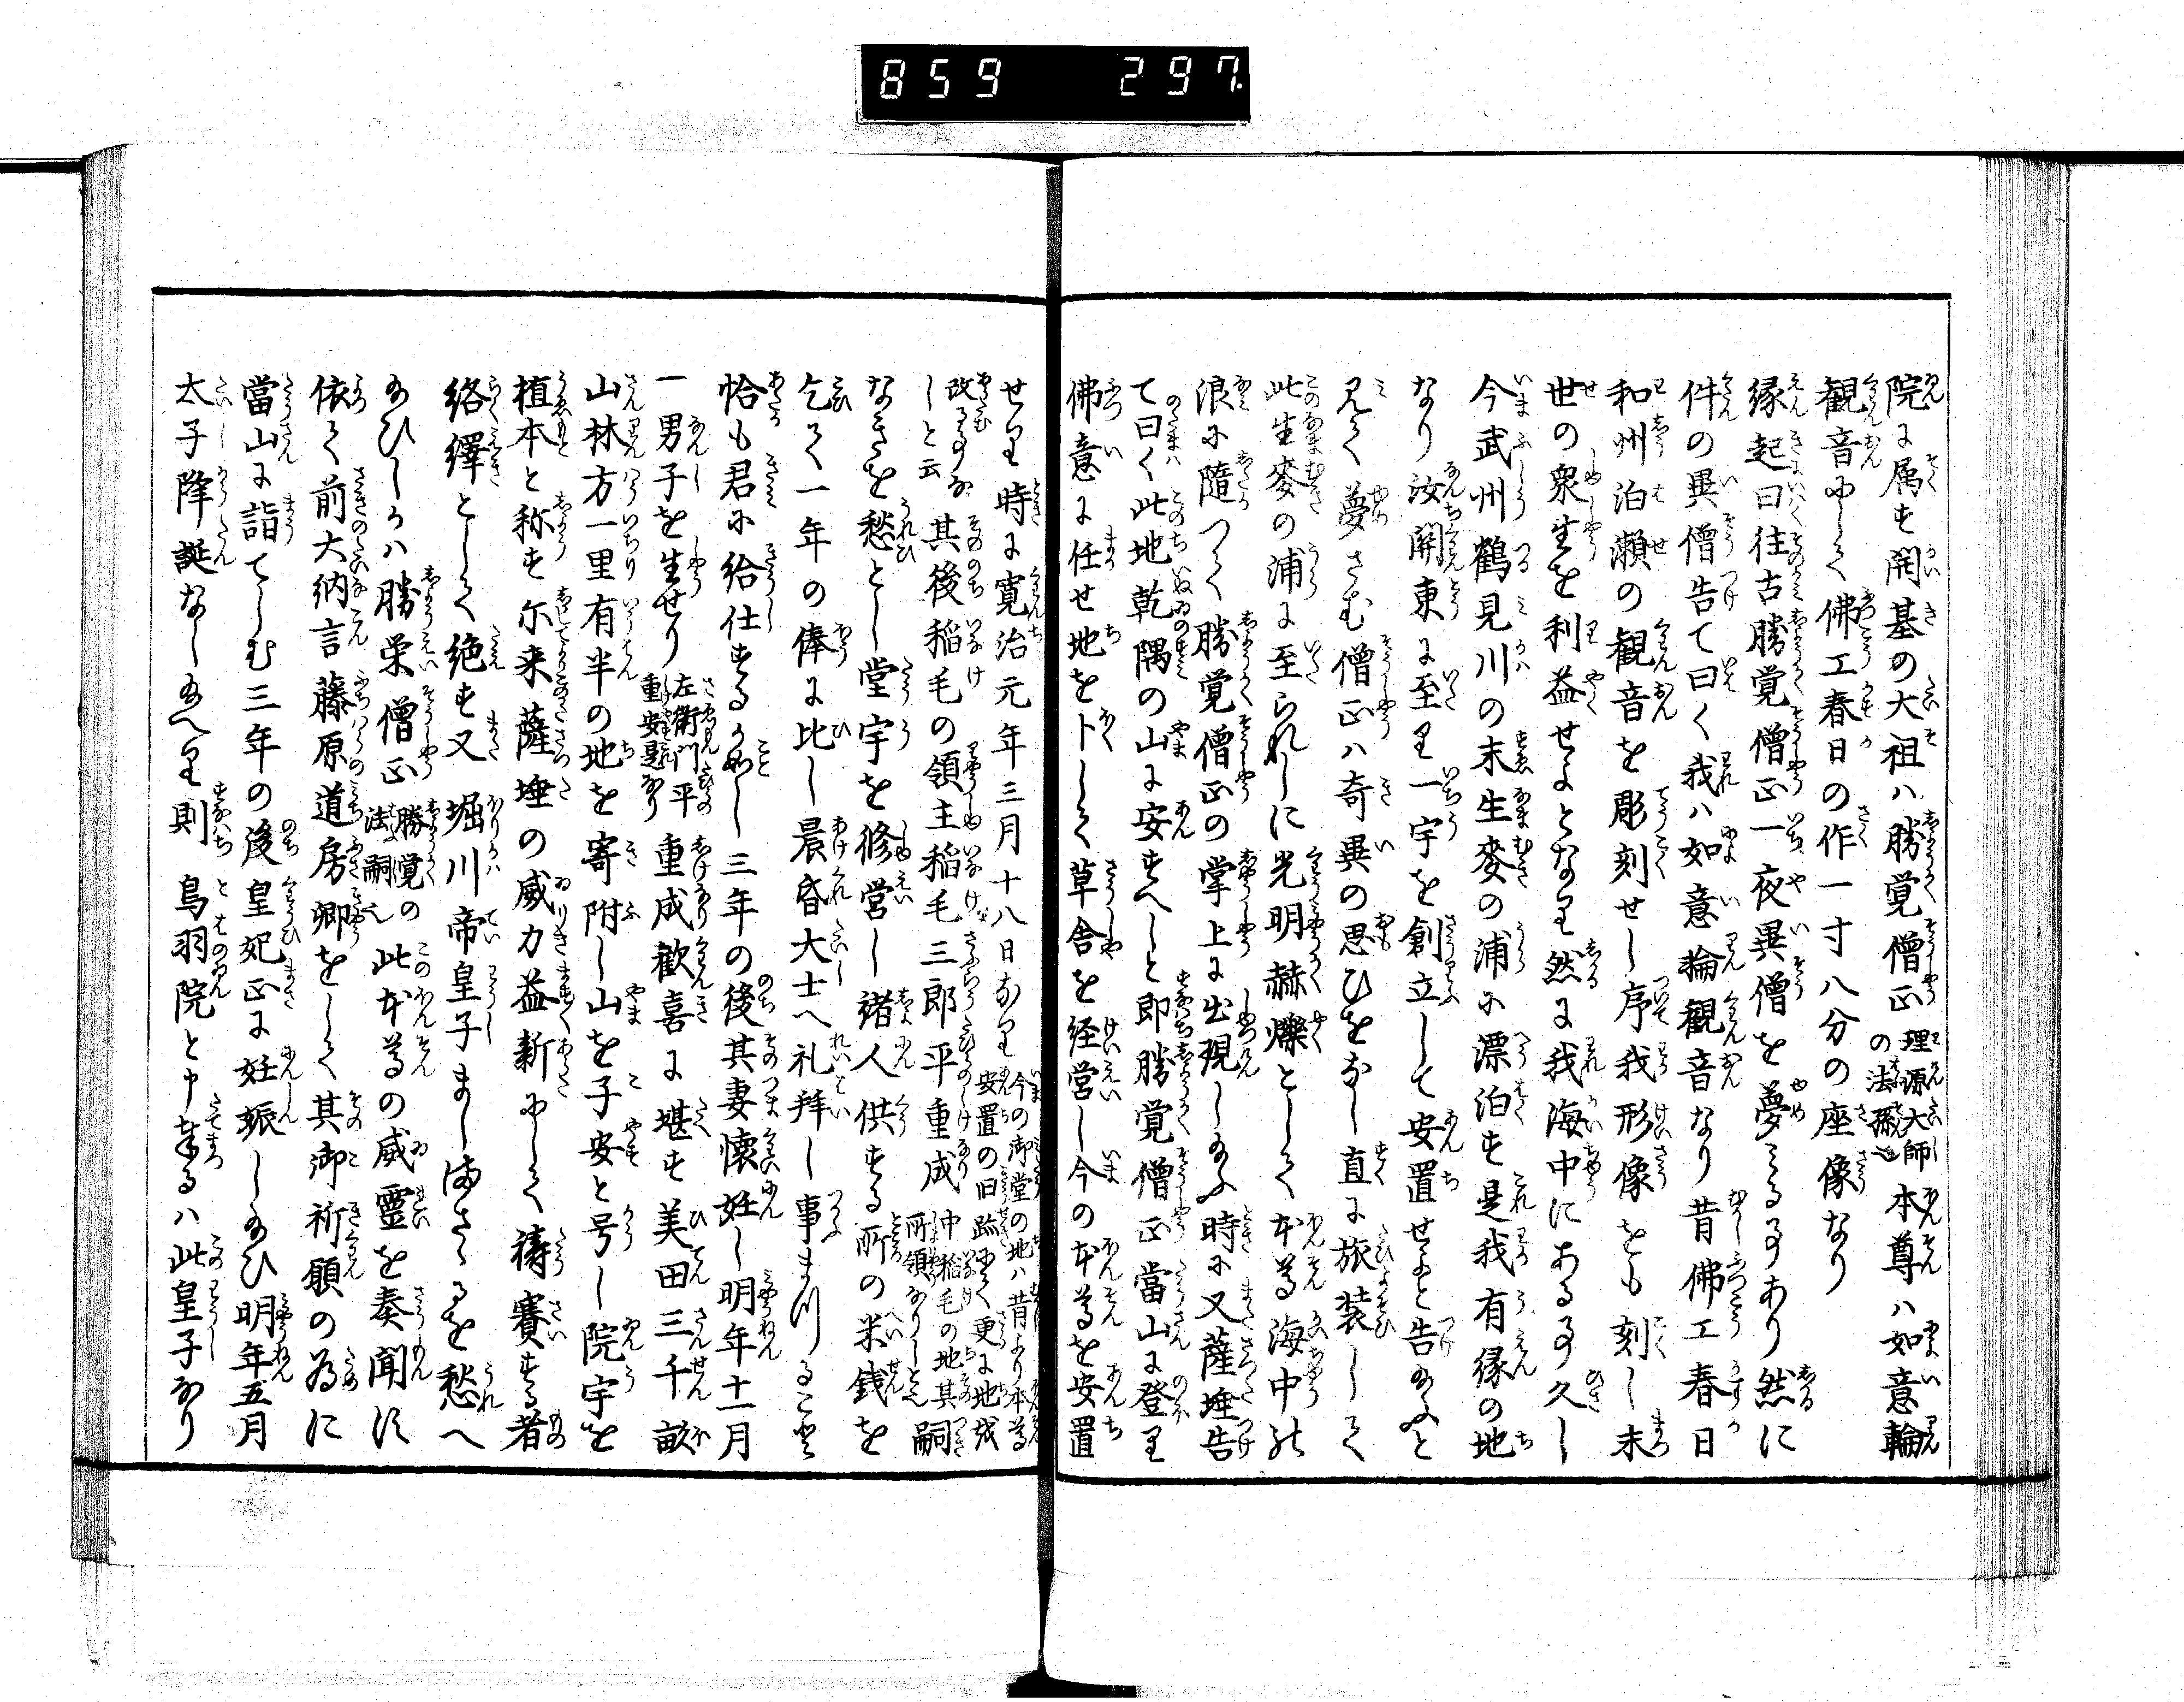 859 297
院に属す開基の大祖ハ勝覚僧正理源大師の法孫也本尊ハ如意輪
観音にして佛工春日の作一寸八分の座像なり
縁起曰往古勝覚僧正一夜異僧を夢みる事あり然に
件の異僧告て曰く我ハ如意輪観音なり昔佛工春日
和州泊瀬の観音を彫刻せし序我形像をも刻し末
世の衆生を利益せよとなり然に我海中にある事久し
今武州鶴見川の末生麥の浦に漂泊す是我有縁の地
なり汝関東に至り一宇を創立して安置せよと告給ふと
見て夢さむ僧正ハ奇異の思ひをなし直に旅装して
此生麥の浦に至られしに光明赫爍として本尊海中の
浪に随つて勝覚僧正の掌上に出現し給ふ時に又薩埵告
て曰く此地乾隅の山に安すへしと即勝覚僧正當山に登り
佛意に任せ地を卜して草舎を経営し今の本尊を安置
せり時に寛治元年三月十八日なり今の御堂の地ハ昔より本尊安置の旧跡にて更に地を
改る事なしと云其後稲毛の領主稲毛三郎平重成中稲毛の地其嗣所領なりしと云嗣
なきを愁とし堂宇を修営し諸人供する所の米銭を
乞て一年の俸に比し晨昏大士へ礼拝し事まつること
恰も君に給仕するか如し三年の後其妻懐妊し明年十一月
一男子を生せり左衛門平重安是なり重成歓喜に堪す美田三千畝
山林方一里有半の地を寄附し山を子安と号し院宇を
植本と称す尓来薩埵の威力益新にして祷賽する者
絡繹として絶す又堀川帝皇子ましまさゝるを愁へ
給ひしかハ勝栄僧正勝覚の法嗣也此本尊の威霊を奏聞す
依て前大納言藤原道房卿をして其御祈願の為に
當山に詣てしむ三年の後皇妃正に妊娠し給ひ明年五月
太子降誕なし給へり則鳥羽院と申奉るハ此皇子なり